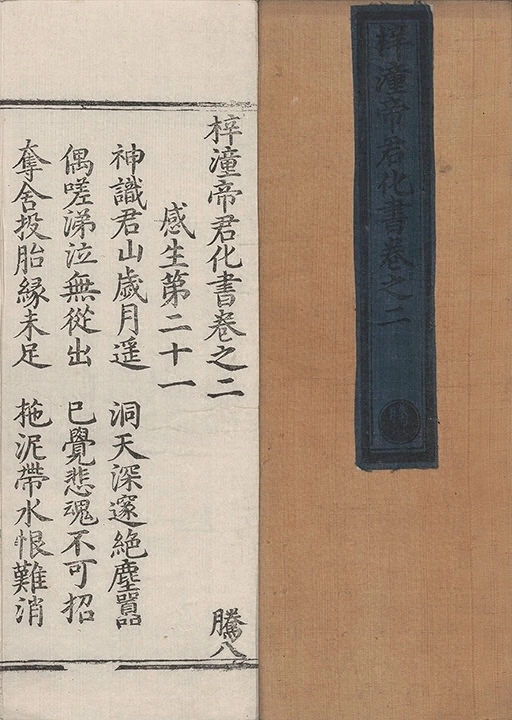 梓潼帝君化書卷之二
梓潼帝君化書卷之二
騰八
感生第二十一
神識君山歲月遥 洞天深邃絶塵囂
偶嗟涕泣無從出 已覺悲魂不可招
奪舍投胎緣未足 拖泥帶水恨難消